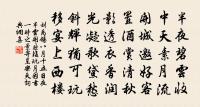 半夜碧雲收
中天素月流
開城邀好客
置酒賞清秋
影透衣香潤
光凝歌黛愁
斜輝猶可玩
移宴上西樓
劉禹錫八月十五日夜
半雲開然後玩月因書
一時之景寄呈樂天